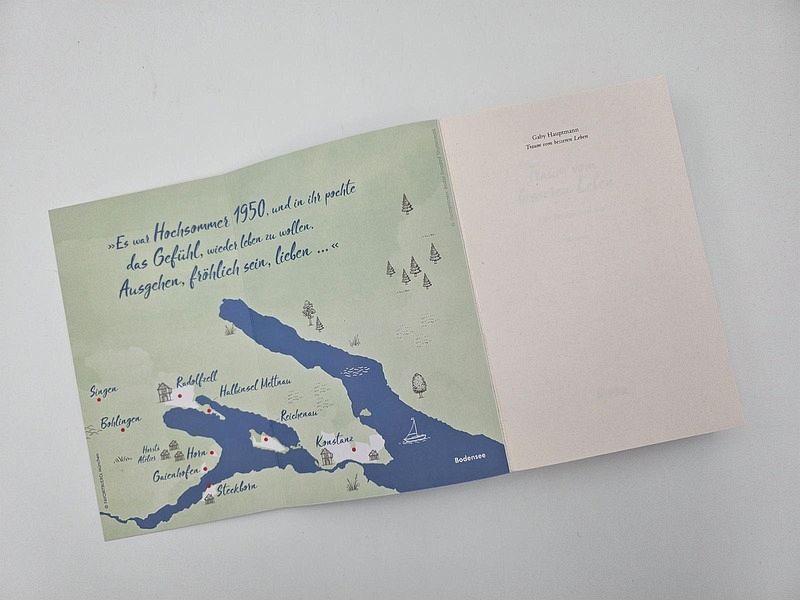 »Es war Hochsommer 1950, und in ihr pochte
das Gefühl, wieder leben zu wollen.
Ausgehen, fröhlich sein, lieben ...«
Singen
Radolfzell
Halbinsel Mettnau
Bohlingen
Reichenau
Horsts
Atelier
Horn
Konstanz
Gaienhofen
Steckborn
Bodensee
Gaby Hauptmann
Traum vom besseren Leben